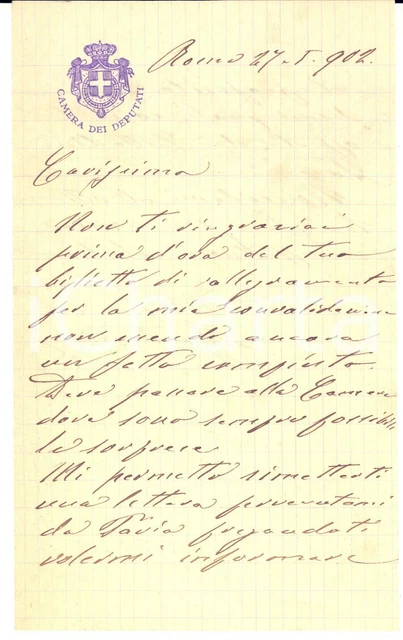 CAMERA DEI DEPUTATI
Roma 27. I. 902.
Carissimo
Non ti ringraziai
prima d'ora del tuo
biglietto di rallegramento
per la mia convalidazione
non essendo ancora
un fatto compiuto.
Deve passare alla Camera
dove sono sempre possibili
le sorprese
Mi permetto rimetterti
una lettera pervenutami
da Pavia pregandoti
volermi informare